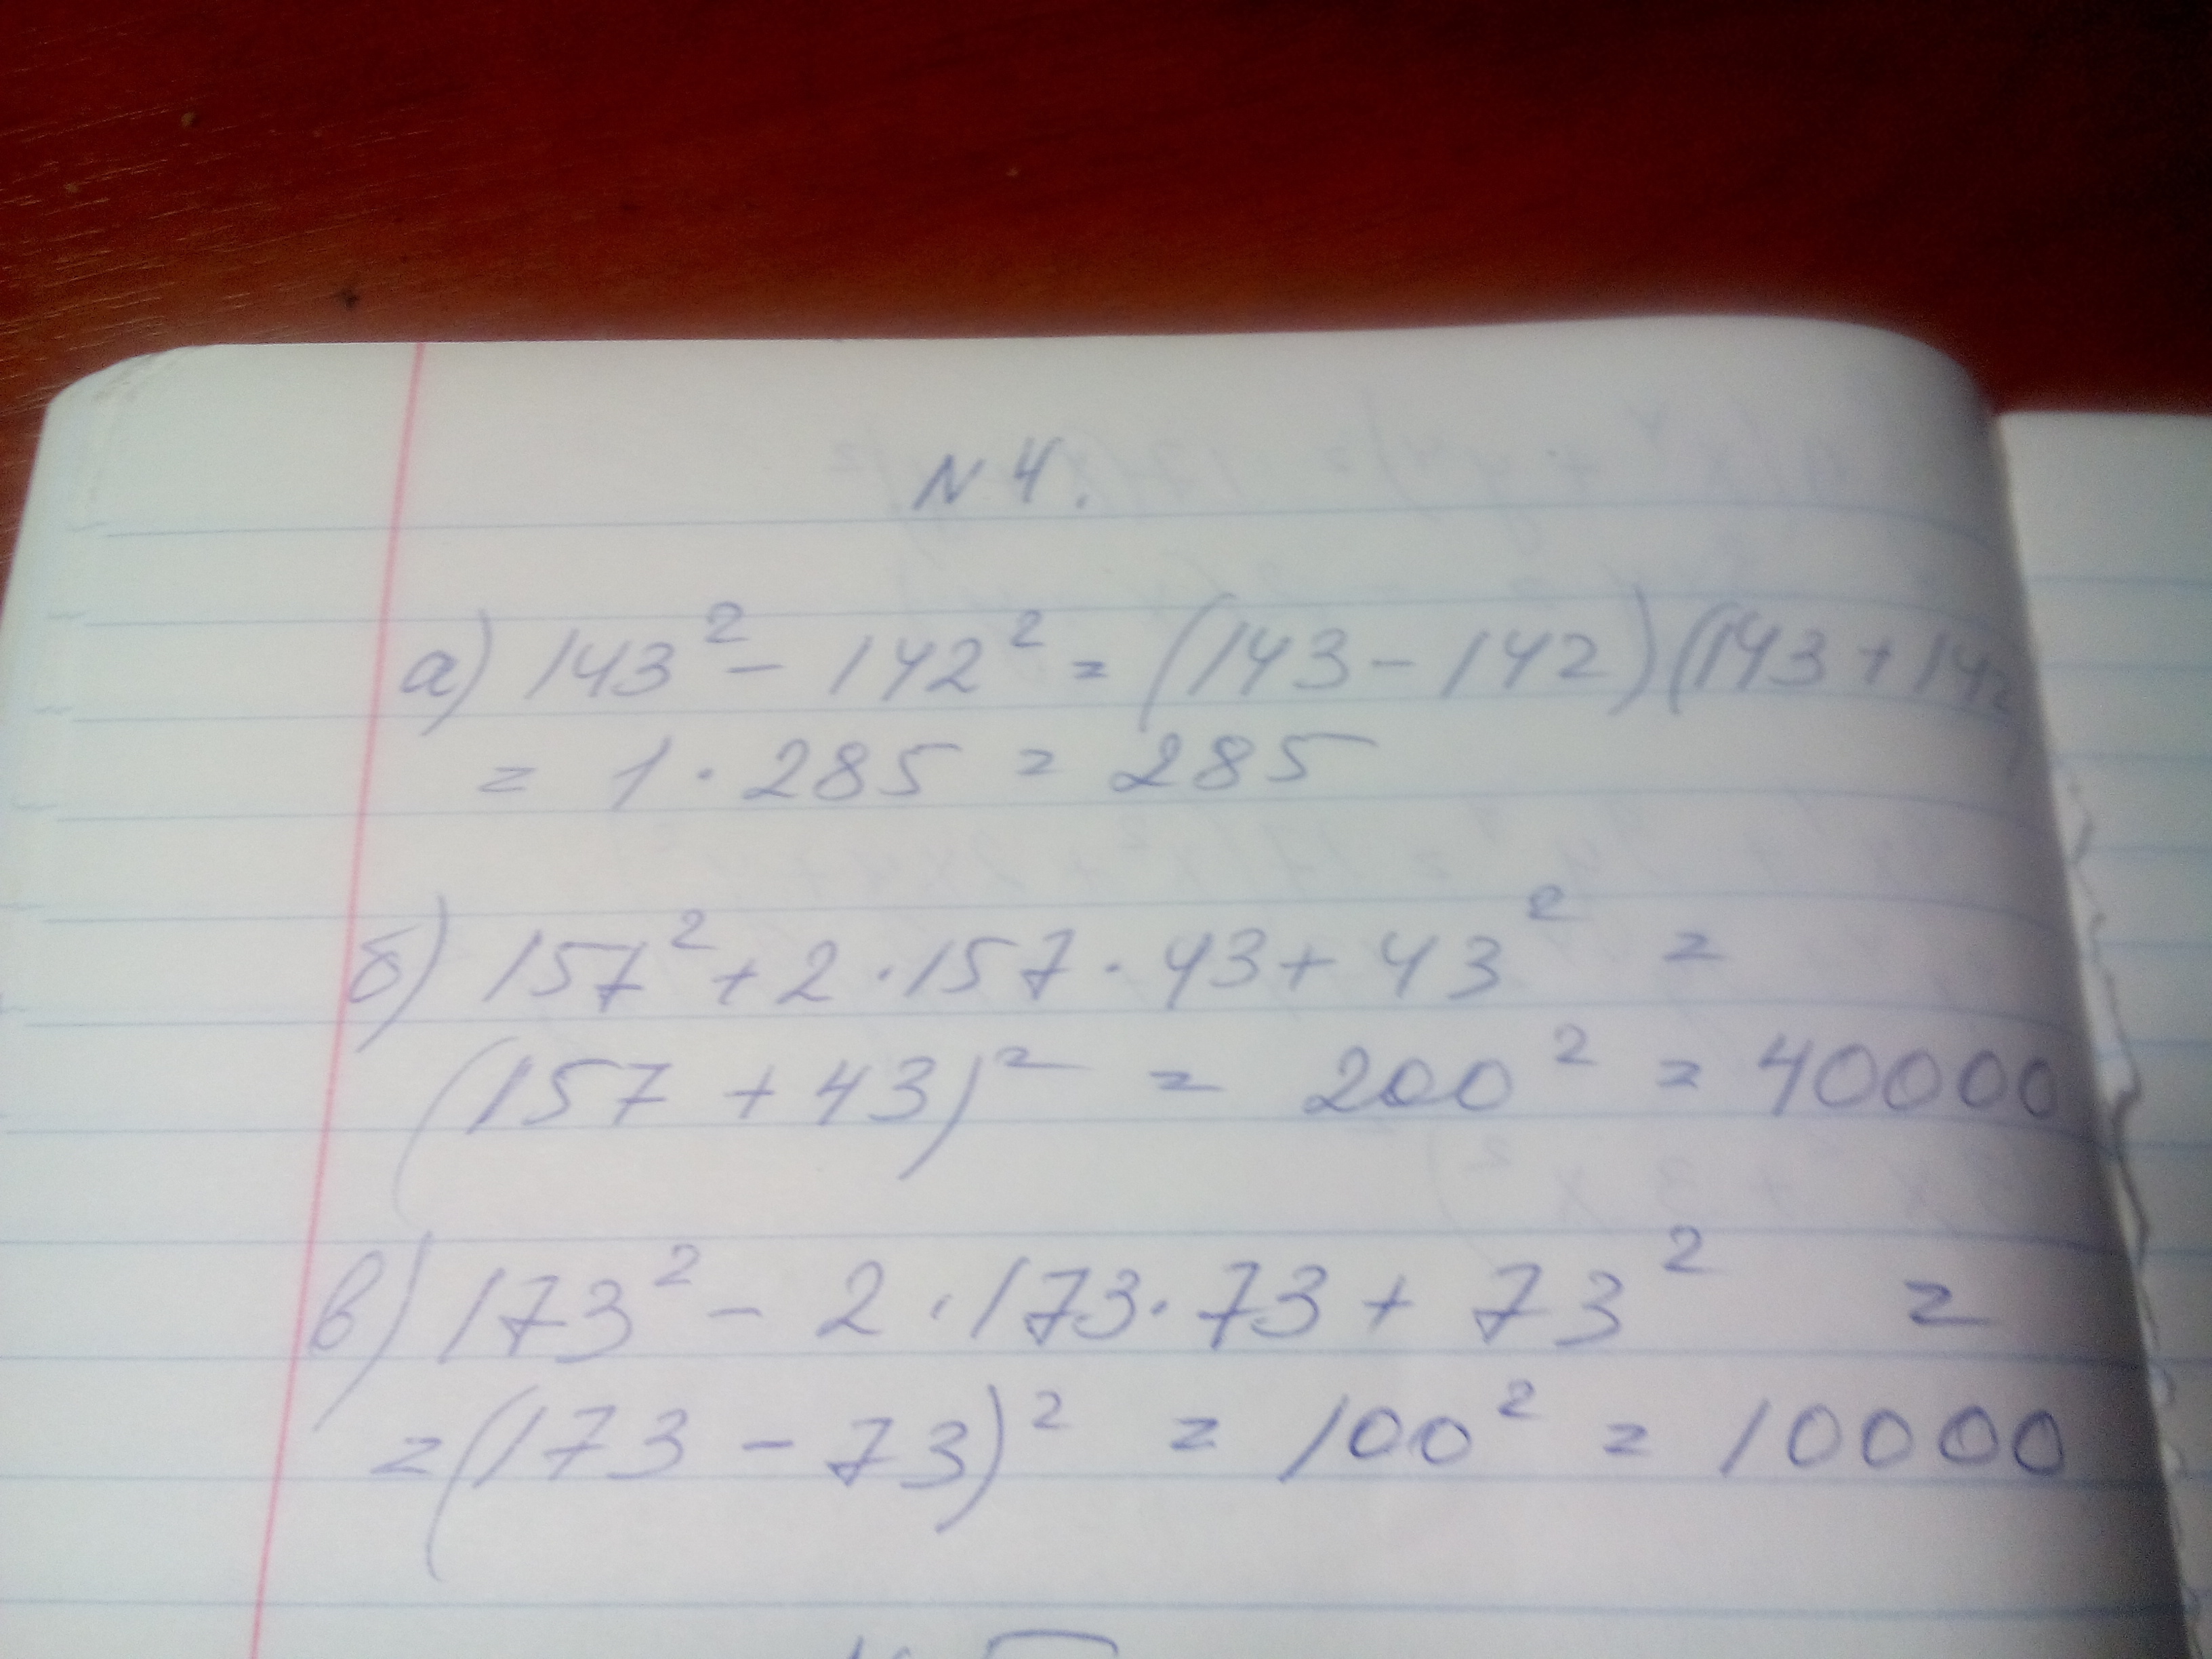 N 4.
а) 143² - 142² = (143 - 142)(143 + 142)
= 1 · 285 = 285
б) 157² + 2 · 157 · 43 + 43² =
(157 + 43)² = 200² = 40000
в) 173² - 2 · 173 · 73 + 73² =
= (173 - 73)² = 100² = 10000